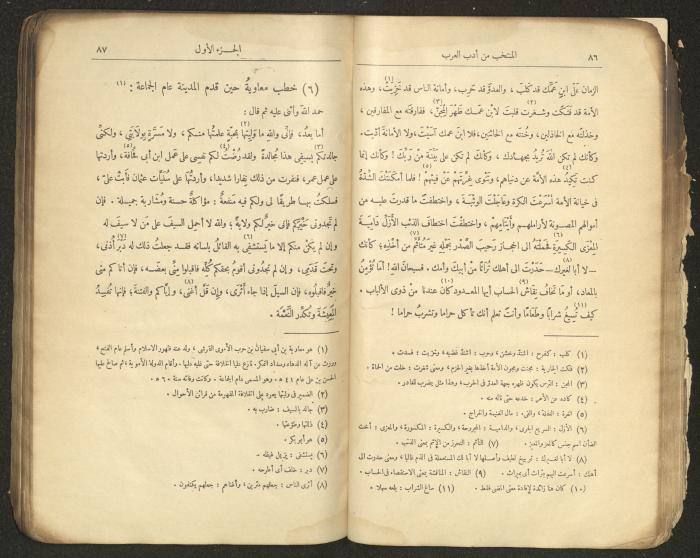 ٨٦
المنتخب من أدب العرب
الزمان على ابن عمك قد كلب ، والعدو قد حرب ، وأمانة الناس قد خزيت ، وهذه
الأمة قد فتكت وشغرت قلبت لابن عمك ظهر المجن ، ففارقته مع المفارقين ،
وخذلته مع الخاذلين ، وخنته مع الخائنين ، فلا ابن عمك آسيت ، ولا الأمانة أديت .
وكأنك لم تكن الله تريد بجهادك ، وكأنك لم تكن على بينة من ربك ! وكأنك إنما
كنت تكيد هذه الأمة عن دنياهم ، وتنوى غرتهم عن فيئهم ! فلما أمكنتك الشدة
فى خيانة الأمة أسرعت الكرة وعاجلت الوثبة ، واختطفت ما قدرت عليه من
أموالهم المصونة لأراملهم وأيتامهم ، واختطفت اختطاف الذئب الأزل دامية
المعزى الكسيرة فحملته الى الحجاز رحيب الصدر بحمله غير متأثم من أخذه ! كأنك
ـ لا أبا لغيرك ـ حدرت الى أهلك تراثا من أبيك وأمك . فسبحان الله ! أما تؤمن
بالمعاد ، أو ما تخاف نقاش الحساب أيها المعدود كان عندنا من ذوى الألباب .
كيف تسيغ شرابا وطعاما وأنت تعلم أنك تأكل حراما وتشرب حراما !
(١) كلب : كفرح : اشتد وخشن ، وحرب : اشتد غضبه ، وخزيت : فسدت .
(٢) فنكت الجارية : مجنت ومجون الأمة أخذها بغير الحزم ، ومعنى شغرت : خلت من الحماة .
(٣) المجن : الترس يكون ظهره جهة العدو فى الحرب ، وهذا مثل يضرب للغادر .
(٤) كاده عن الأمر : خدعه حتى ناله منه .
(٥) الغرة : الغفلة ، والفىء : مال الغنيمة والخراج .
(٦) الأزل : السريع الجرى ، والدامية : المجروحة ، والكسيرة : المكسورة ، والمعزى : أخت
الضأن اسم جنس كالمعز والمعيز . (٧) التأثم : التحرز من الإثم بمعنى الذنب .
(٨) لا أبا لغيرك : توبيخ لطيف وأصلها لا أبا لك المستعملة فى الذم غالبا ، ومعنى حدرت الى
أهلك : أسرعت اليهم بتراث أى بميراث . (٩) النقاش : المناقشة بمعنى الاستقصاء فى الحساب .
(١٠) كان هنا زائدة لإفادة معنى المضى فقط . (١١) ساغ الشراب : بلعه سهلا .
الجزء الأول
٨٧
(٦) خطب معاوية حين قدم المدينة عام الجماعة : (١)
حمد الله وأثنى عليه ثم قال :
أما بعد ، فإنى والله ما وليتها بمحبة علمتها منكم ، ولا مسرة بولايتى ، ولكنى
جالدتكم بسيفى هذا مجالدة ولقد رضت لكم نفسى على عمل ابن أبى قحافة ، وأردتها
على عمل عمر ، فنفرت من ذلك نفارا شديدا ، وأردتها على سنيات عثمان فأبت على ،
فسلكت بها طريقا لى ولكم فيه منفعة : مؤاكلة حسنة ومشاربة جميلة . فإن
لم تجدونى خيركم فإنى خير لكم ولاية ؛ والله لا أحمل السيف على من لا سيف له
وإن لم يكن منكم إلا ما يستشفى به القائل بلسانه فقد جعلت ذلك له دبر أذنى ،
وتحت قدمى ، وإن لم تجدونى أقوم بحقكم كله فاقبلوا منى بعضه ، فإن أتاكم منى
خير فاقبلوه ، فإن السيل إذا جاء أثرى ، وإن قل أغنى ، وإياكم والفتنة ؛ فإنها تفسد
المعيشة وتكدر النعمة .
(١) هو معاوية بن أبى سفيان بن حرب الأموى القرشى ، ولد عند ظهور الاسلام وأسلم عام الفتح ،
وورث من آله الدهاء وسداد الفكر . نازع عليا الخلافة حتى غلبه عليها . وأقام الدولة الأموية ، ثم صالح عليها
الحسن بن على عام ٤١ ه . وهو المسمى عام الجماعة . وكانت وفاته سنة ٦٠ ه .
(٢) الضمير فى وليتها يعود على الخلافة المفهومة من قرائن الأحوال .
(٣) جالد بالسيف : ضارب به .
(٤) ذللتها وطوعتها .
(٥) هو أبو بكر .
(٦) يستشفى : يزيل غيظه .
(٧) دبر : خلف أى أطرحه .
(٨) أثرى الناس : جعلهم مثرين ، وأغناهم : جعلهم يكتفون .